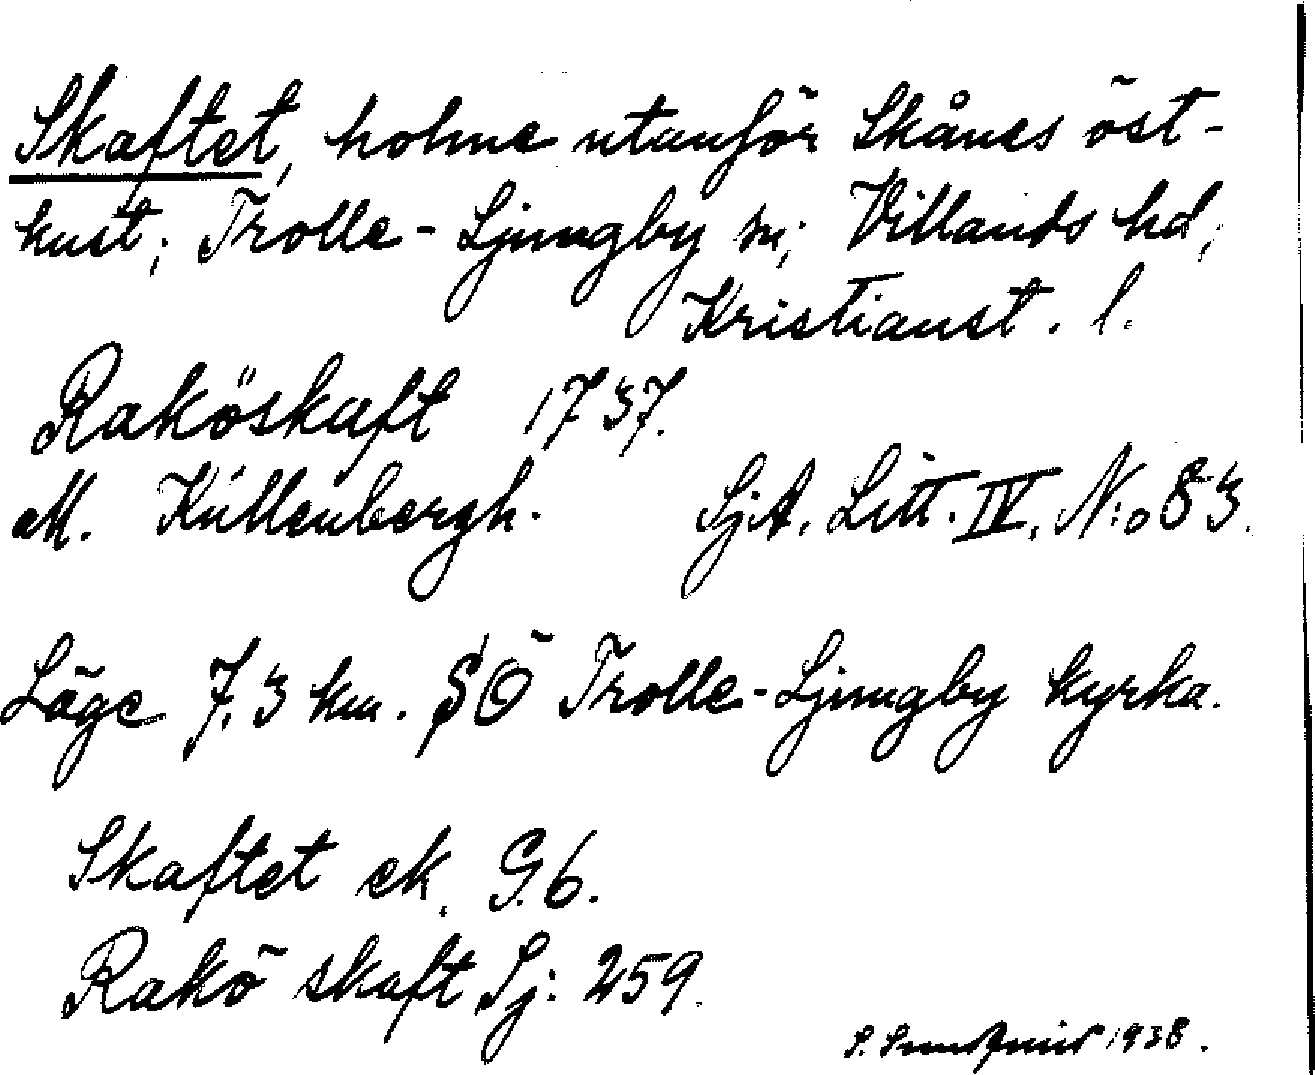 Skaftet, holme utanför Skånes öst-
kust; Trolle-Ljungby sn; Villands hd;
Kristianst. l.
Raköskaft 1737.
M. Küllenbergh. SjA. Litt. IV. N:o 83.
Läge 7.3 km. SÖ Trolle-Ljungby kyrka.
Skaftet ek. G.6.
Rakö skaft Sj: 259.
S. 1938.